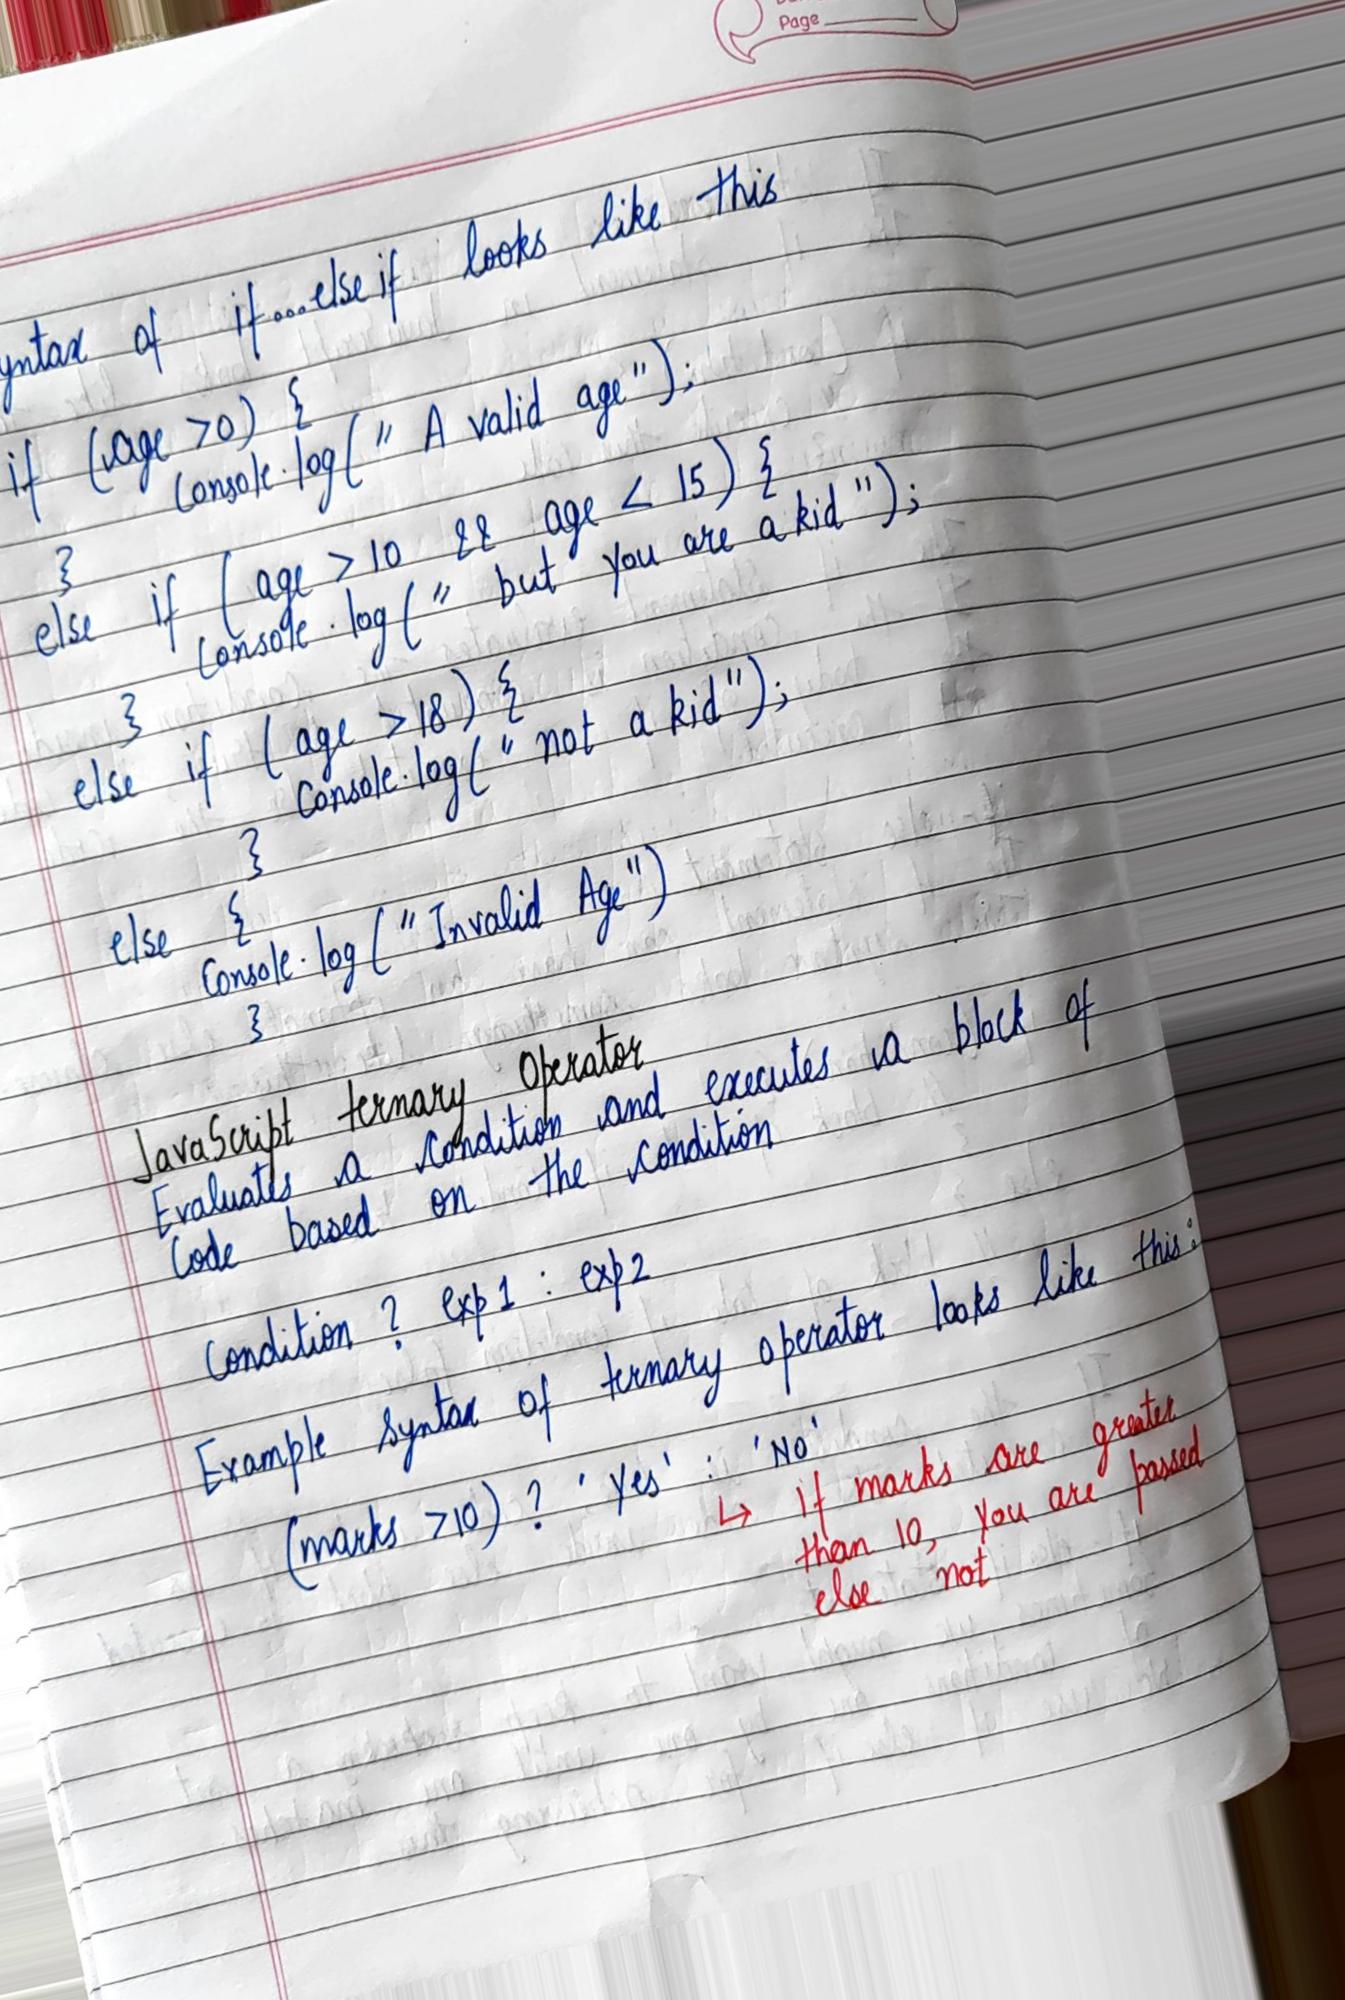 Page
yntax of if...else if looks like this
if (age >0) {
Console.log(" A valid age");
}
else if (age > 10 && age < 15) {
Console.log(" but you are a kid");
}
else if (age >18) {
Console.log(" not a kid");
}
else {
Console.log("Invalid Age")
}
JavaScript ternary Operator
Evaluates a condition and executes a block of
Code based on the condition
Condition ? exp1 : exp2
Example syntax of ternary operator looks like this:
(marks >10) ? 'Yes' : 'No'
↳ if marks are greater
than 10, you are passed
else not